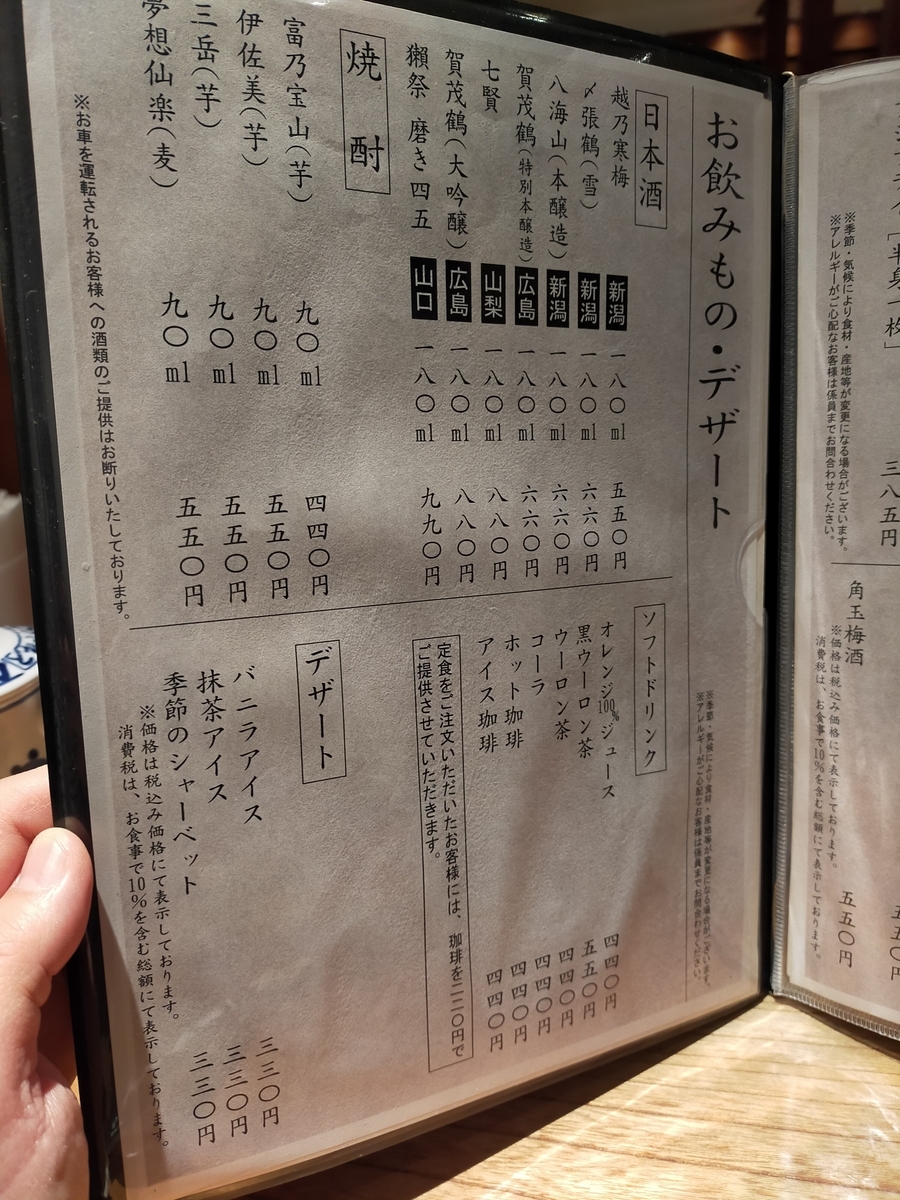 三八五円
［半身一枚］
※季節・気候により食材・産地等が変更になる場合がございます。
※アレルギーがご心配なお客様は係員までお問合わせください。
五五〇円
角玉梅酒 五五〇円
※価格は税込み価格にて表示しております。
消費税は、お食事で10％を含む総額にて表示しております。
お飲みもの・デザート
※季節・気候により食材・産地等が変更になる場合がございます。
※アレルギーがご心配なお客様は係員までお問合わせください。
日本酒
越乃寒梅 新潟 一八〇ml 五五〇円
〆張鶴（雪） 新潟 一八〇ml 六六〇円
八海山（本醸造） 新潟 一八〇ml 六六〇円
賀茂鶴（特別本醸造） 広島 一八〇ml 六六〇円
七賢 山梨 一八〇ml 八八〇円
賀茂鶴（大吟醸） 広島 一八〇ml 八八〇円
獺祭 磨き四五 山口 一八〇ml 九九〇円
焼酎
富乃宝山（芋） 九〇ml 四四〇円
伊佐美（芋） 九〇ml 五五〇円
三岳（芋） 九〇ml 五五〇円
夢想仙楽（麦） 九〇ml 五五〇円
※お車を運転されるお客様への酒類のご提供はお断りいたしております。
ソフトドリンク
オレンジ100％ジュース 四四〇円
黒ウーロン茶 五五〇円
ウーロン茶 四四〇円
コーラ 四四〇円
ホット珈琲 四四〇円
アイス珈琲 四四〇円
定食をご注文いただいたお客様には、珈琲を二二〇円で
ご提供させていただきます。
デザート
バニラアイス 三三〇円
抹茶アイス 三三〇円
季節のシャーベット 三三〇円
※価格は税込み価格にて表示しております。
消費税は、お食事で10％を含む総額にて表示しております。